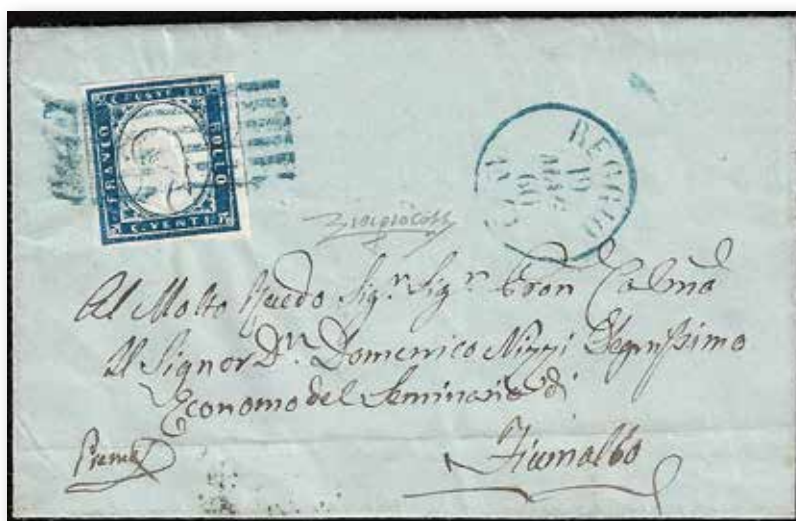 FRANCO
POSTE
BOLLO
C. VENTI
REGGIO
19
60
Al Molto Sigr. Sigr. Pron
Il Signor Dn. Domenico Nizzi Degnissimo
Economo del Seminario di
Fiumalbo